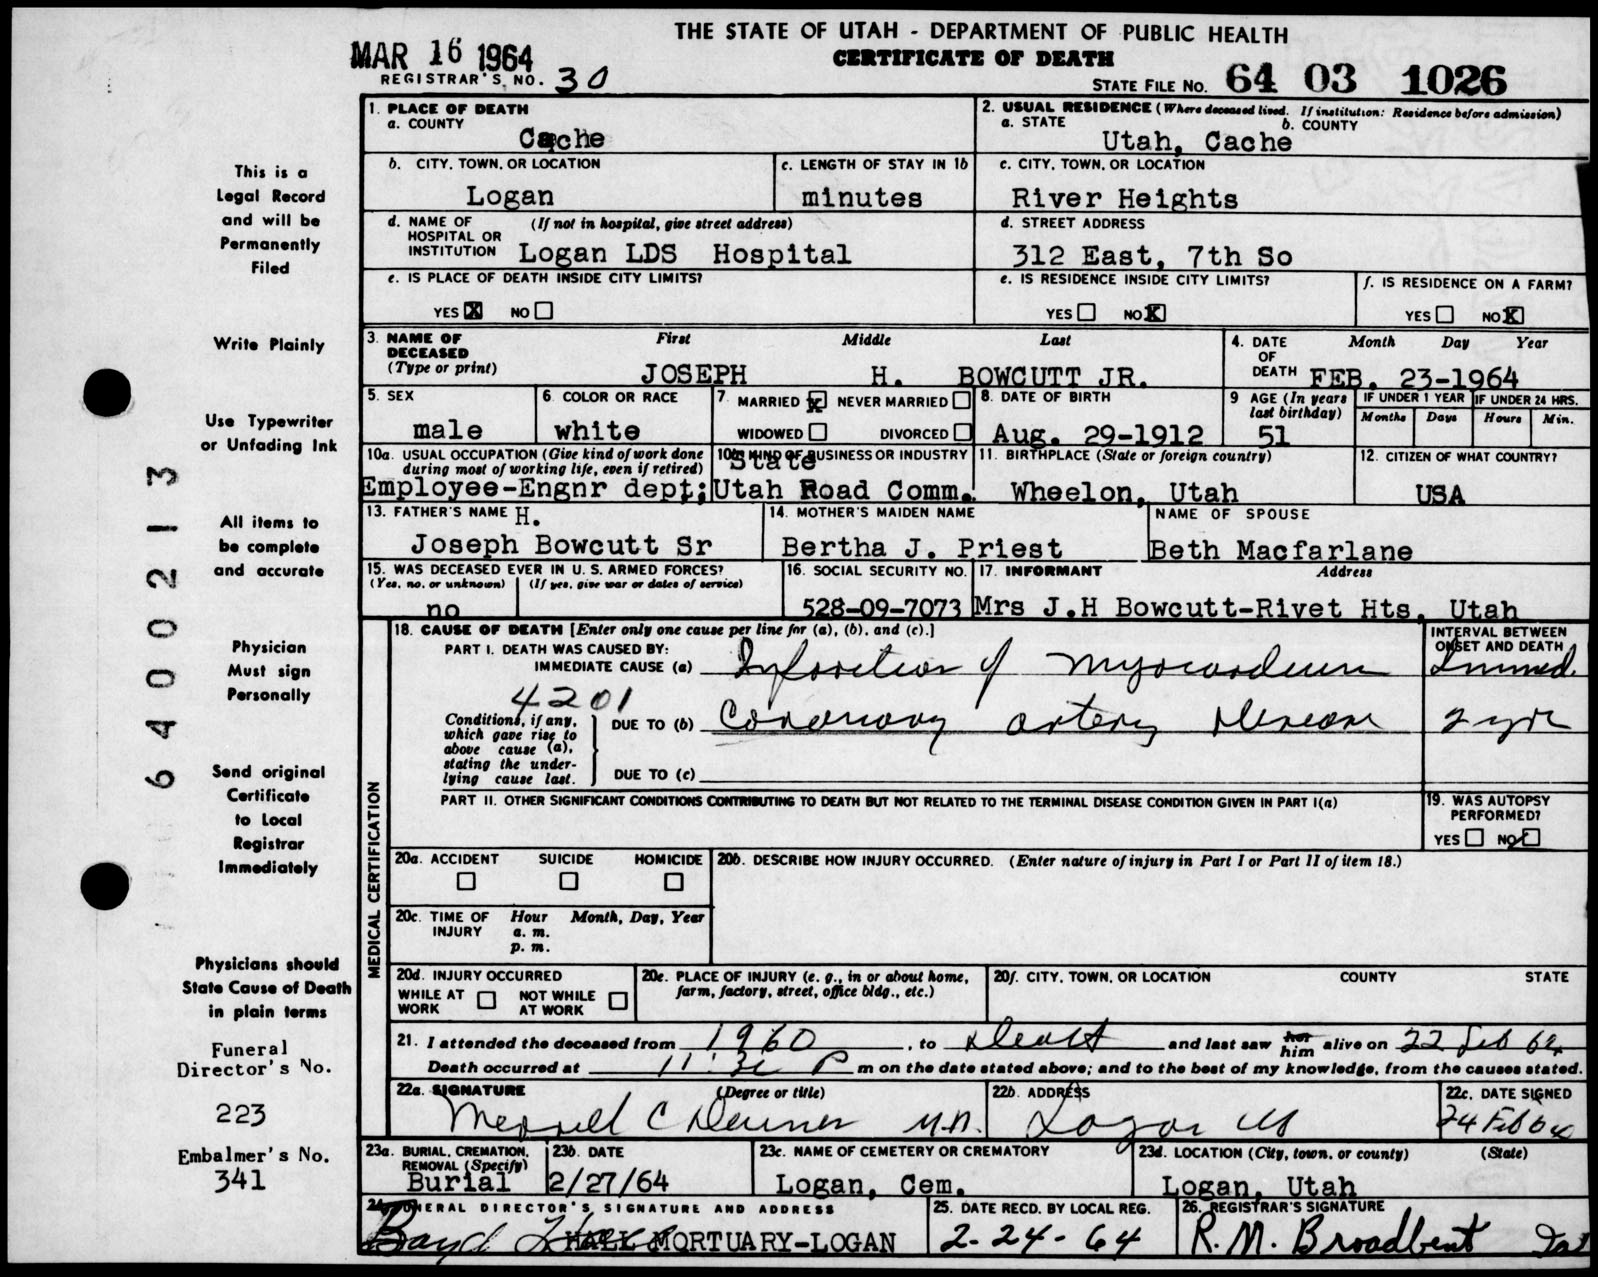 THE STATE OF UTAH - DEPARTMENT OF PUBLIC HEALTH
MAR 16 1964
CERTIFICATE OF DEATH
REGISTRAR'S NO. 30
STATE FILE NO. 64 03 1026
1. PLACE OF DEATH
a. COUNTY
Cache
2. USUAL RESIDENCE (Where deceased lived. If institution: Residence before admission)
a. STATE b. COUNTY
Utah, Cache
b. CITY, TOWN, OR LOCATION
Logan
c. LENGTH OF STAY IN 1b
minutes
c. CITY, TOWN, OR LOCATION
River Heights
d. NAME OF HOSPITAL OR INSTITUTION (If not in hospital, give street address)
Logan LDS Hospital
d. STREET ADDRESS
312 East, 7th So
e. IS PLACE OF DEATH INSIDE CITY LIMITS?
YES X NO
e. IS RESIDENCE INSIDE CITY LIMITS?
YES NO X
f. IS RESIDENCE ON A FARM?
YES NO X
3. NAME OF DECEASED (Type or print)
First Middle Last
JOSEPH H. BOWCUTT JR.
4. DATE OF DEATH Month Day Year
FEB. 23-1964
5. SEX
male
6. COLOR OR RACE
white
7. MARRIED X NEVER MARRIED
WIDOWED DIVORCED
8. DATE OF BIRTH
Aug. 29-1912
9 AGE (In years last birthday)
51
IF UNDER 1 YEAR IF UNDER 24 HRS.
Months Days Hours Min.
10a. USUAL OCCUPATION (Give kind of work done during most of working life, even if retired)
Employee-Engnr dept;
10b. KIND OF BUSINESS OR INDUSTRY
State
Utah Road Comm.
11. BIRTHPLACE (State or foreign country)
Wheelon, Utah
12. CITIZEN OF WHAT COUNTRY?
USA
13. FATHER'S NAME H.
Joseph Bowcutt Sr
14. MOTHER'S MAIDEN NAME
Bertha J. Priest
NAME OF SPOUSE
Beth Macfarlane
15. WAS DECEASED EVER IN U. S. ARMED FORCES?
(Yes, no, or unknown) (If yes, give war or dates of service)
no
16. SOCIAL SECURITY NO.
528-09-7073
17. INFORMANT Address
Mrs J.H Bowcutt-Rivet Hts, Utah
18. CAUSE OF DEATH [Enter only one cause per line for (a), (b), and (c).]
INTERVAL BETWEEN ONSET AND DEATH
PART I. DEATH WAS CAUSED BY:
IMMEDIATE CAUSE (a) Infarction of myocardium Immed.
4201
Conditions, if any, which gave rise to above cause (a), stating the underlying cause last.
DUE TO (b) Coronary artery disease 2 yrs
DUE TO (c)
PART II. OTHER SIGNIFICANT CONDITIONS CONTRIBUTING TO DEATH BUT NOT RELATED TO THE TERMINAL DISEASE CONDITION GIVEN IN PART I(a)
19. WAS AUTOPSY PERFORMED?
YES NO
MEDICAL CERTIFICATION
20a. ACCIDENT SUICIDE HOMICIDE
20b. DESCRIBE HOW INJURY OCCURRED. (Enter nature of injury in Part I or Part II of item 18.)
20c. TIME OF INJURY Hour Month, Day, Year
a. m.
p. m.
20d. INJURY OCCURRED
WHILE AT WORK NOT WHILE AT WORK
20e. PLACE OF INJURY (e. g., in or about home, farm, factory, street, office bldg., etc.)
20f. CITY, TOWN, OR LOCATION COUNTY STATE
21. I attended the deceased from 1960, to Death and last saw her him alive on 22 Feb 64
Death occurred at 11:30 P m on the date stated above; and to the best of my knowledge, from the causes stated.
22a. SIGNATURE (Degree or title)
Merrill C M.D.
22b. ADDRESS
Logan Ut
22c. DATE SIGNED
24 Feb 64
23a. BURIAL, CREMATION, REMOVAL (Specify)
Burial
23b. DATE
2/27/64
23c. NAME OF CEMETERY OR CREMATORY
Logan, Cem.
23d. LOCATION (City, town, or county) (State)
Logan, Utah
24. FUNERAL DIRECTOR'S SIGNATURE AND ADDRESS
Boyd HALL MORTUARY-LOGAN
25. DATE RECD. BY LOCAL REG.
2-24-64
26. REGISTRAR'S SIGNATURE
R.M. Broadbent
This is a
Legal Record
and will be
Permanently
Filed
Write Plainly
Use Typewriter
or Unfading Ink
All items to
be complete
and accurate
Physician
Must sign
Personally
Send original
Certificate
to Local
Registrar
Immediately
Physicians should
State Cause of Death
in plain terms
Funeral
Director's No.
223
Embalmer's No.
341
64000213